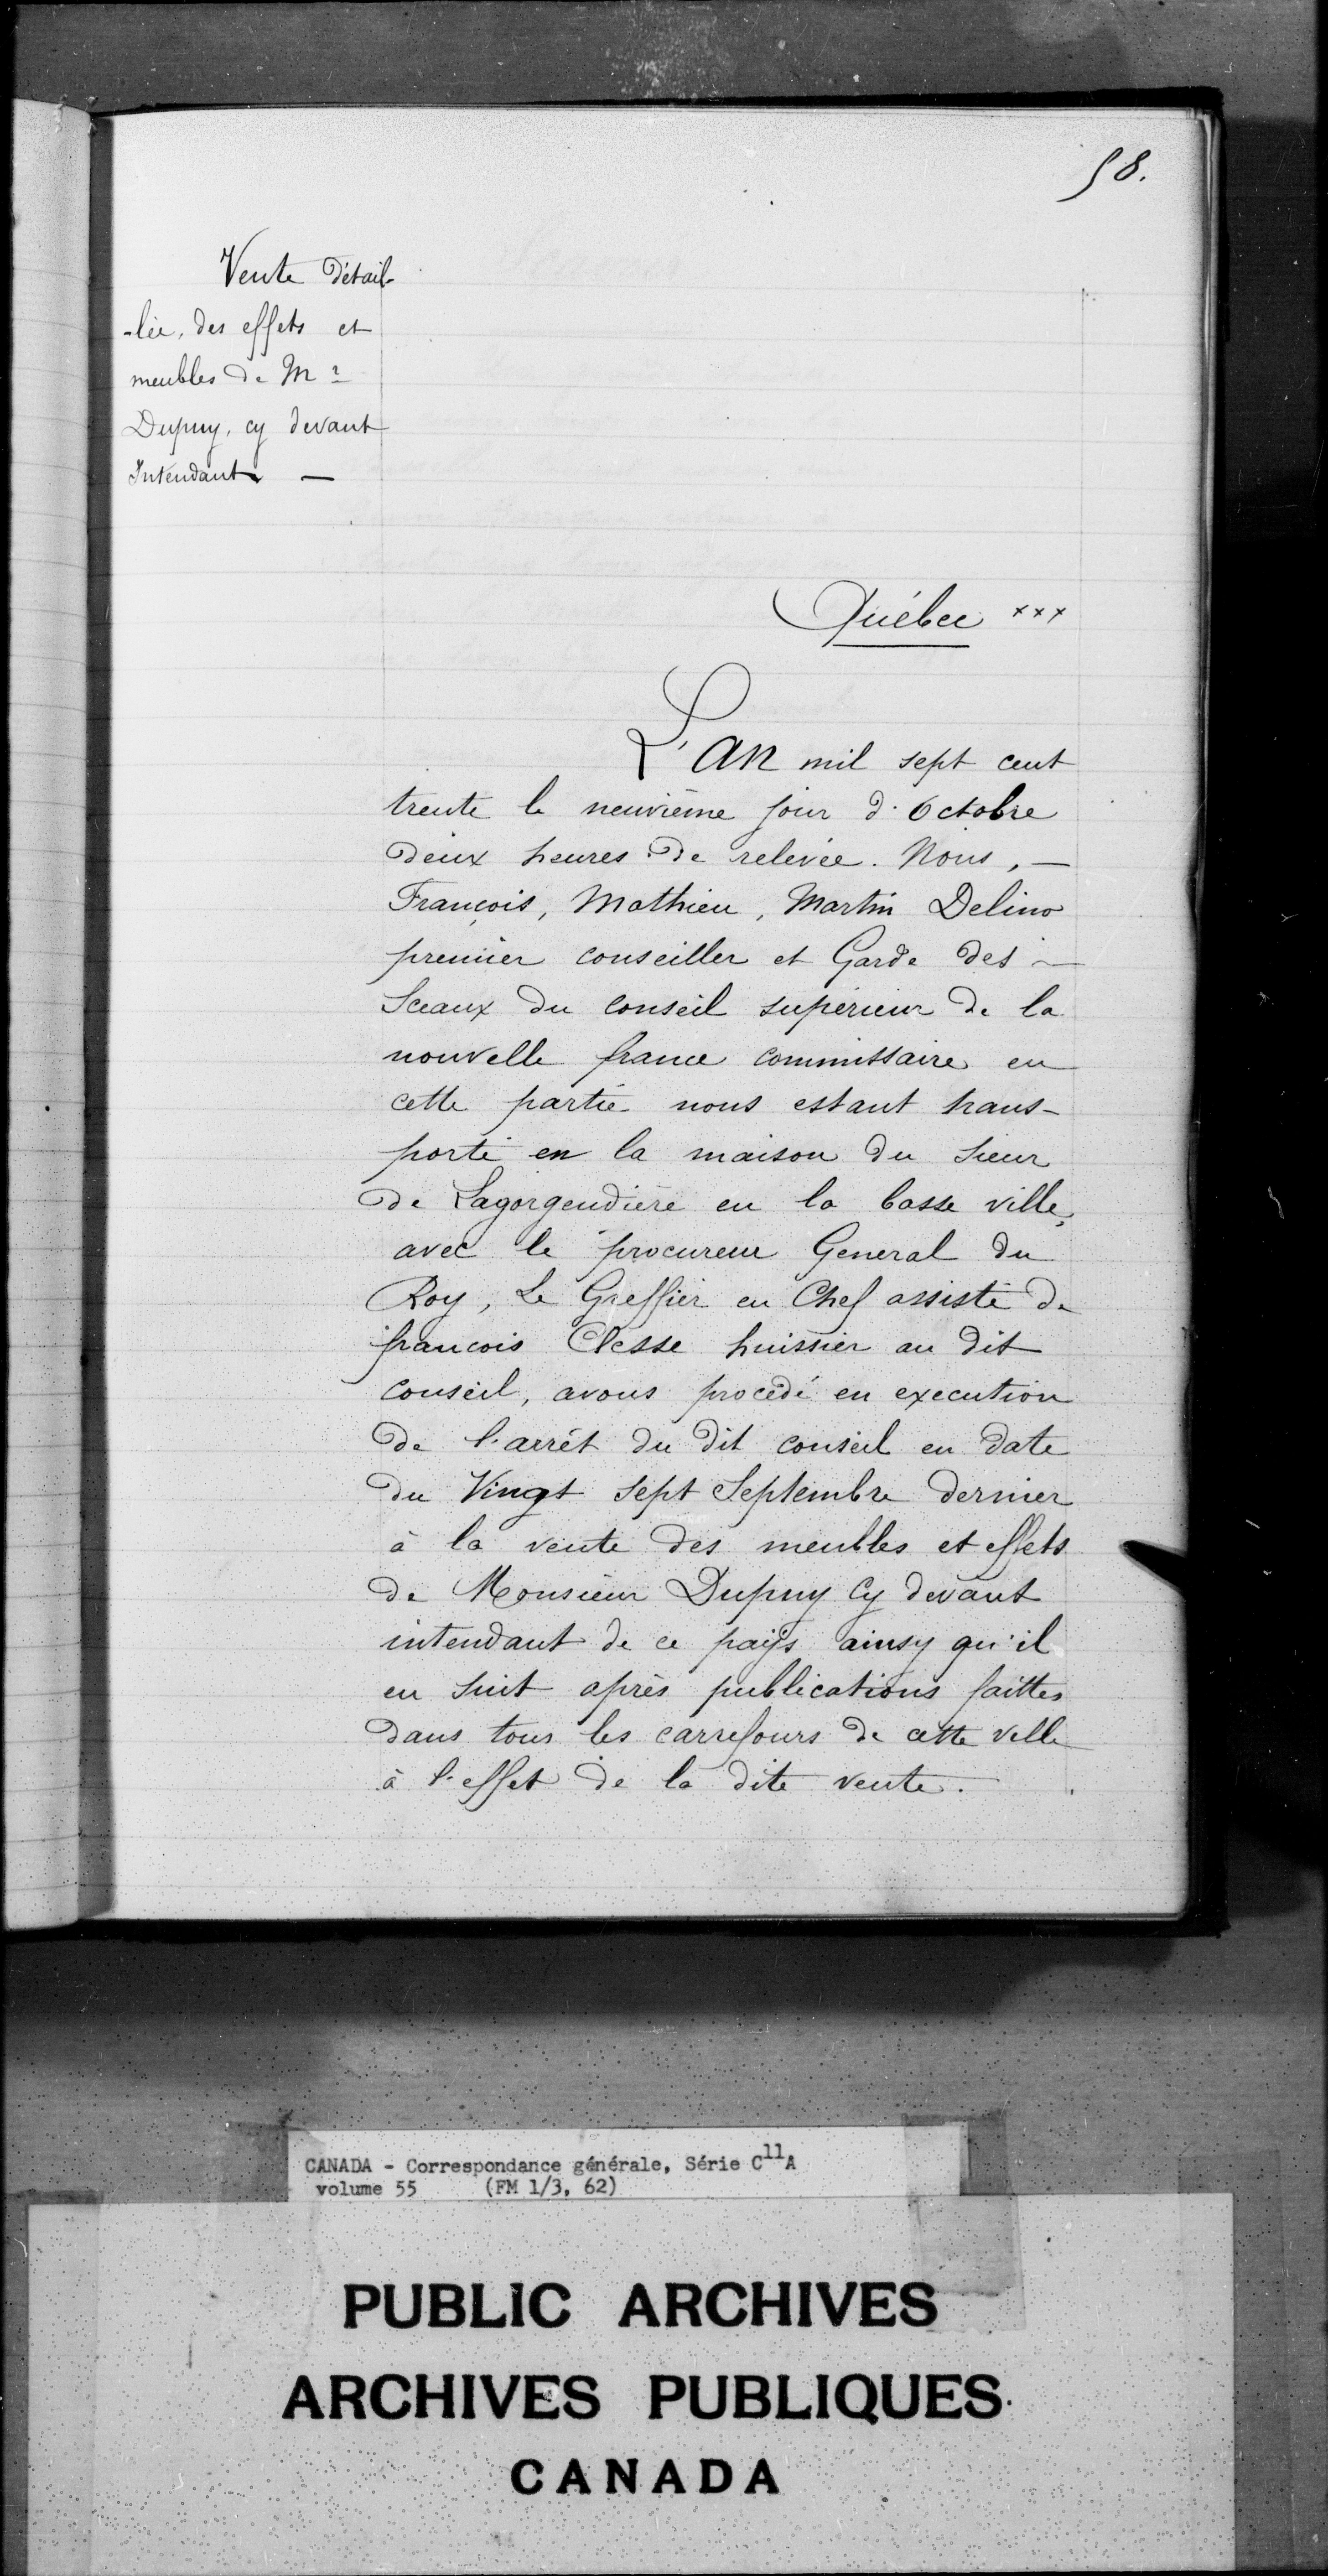 58.
Vente détail-
-lée, des effets et
meubles de Mr
Dupuy, cy devant
Intendant —
Québec xxx
L'an mil sept cent
trente le neuvième jour d'Octobre
deux heures de relevée. Nous, —
François, Mathieu, Martin Delino
premier conseiller et Garde des —
Sceaux du conseil supérieur de la
nouvelle france commissaire en
cette partie nous estant trans-
porté en la maison du sieur
de Lagorgendière en la basse ville,
avec le procureur General du
Roy, Le Greffier en Chef assisté de
francois Clesse huissier au dit
conseil, avons procédé en execution
de l'arrêt du dit conseil en date
du Vingt sept Septembre dernier
à la vente des meubles et effets
de Monsieur Dupuy Cy devant
intendant de ce pays ainsy qu'il
en suit après publications faittes
dans tous les carrefours de cette ville
à l'effet de la dite vente.
CANADA - Correspondance générale, Série C11A
volume 55 (FM 1/3, 62)
PUBLIC ARCHIVES
ARCHIVES PUBLIQUES
CANADA